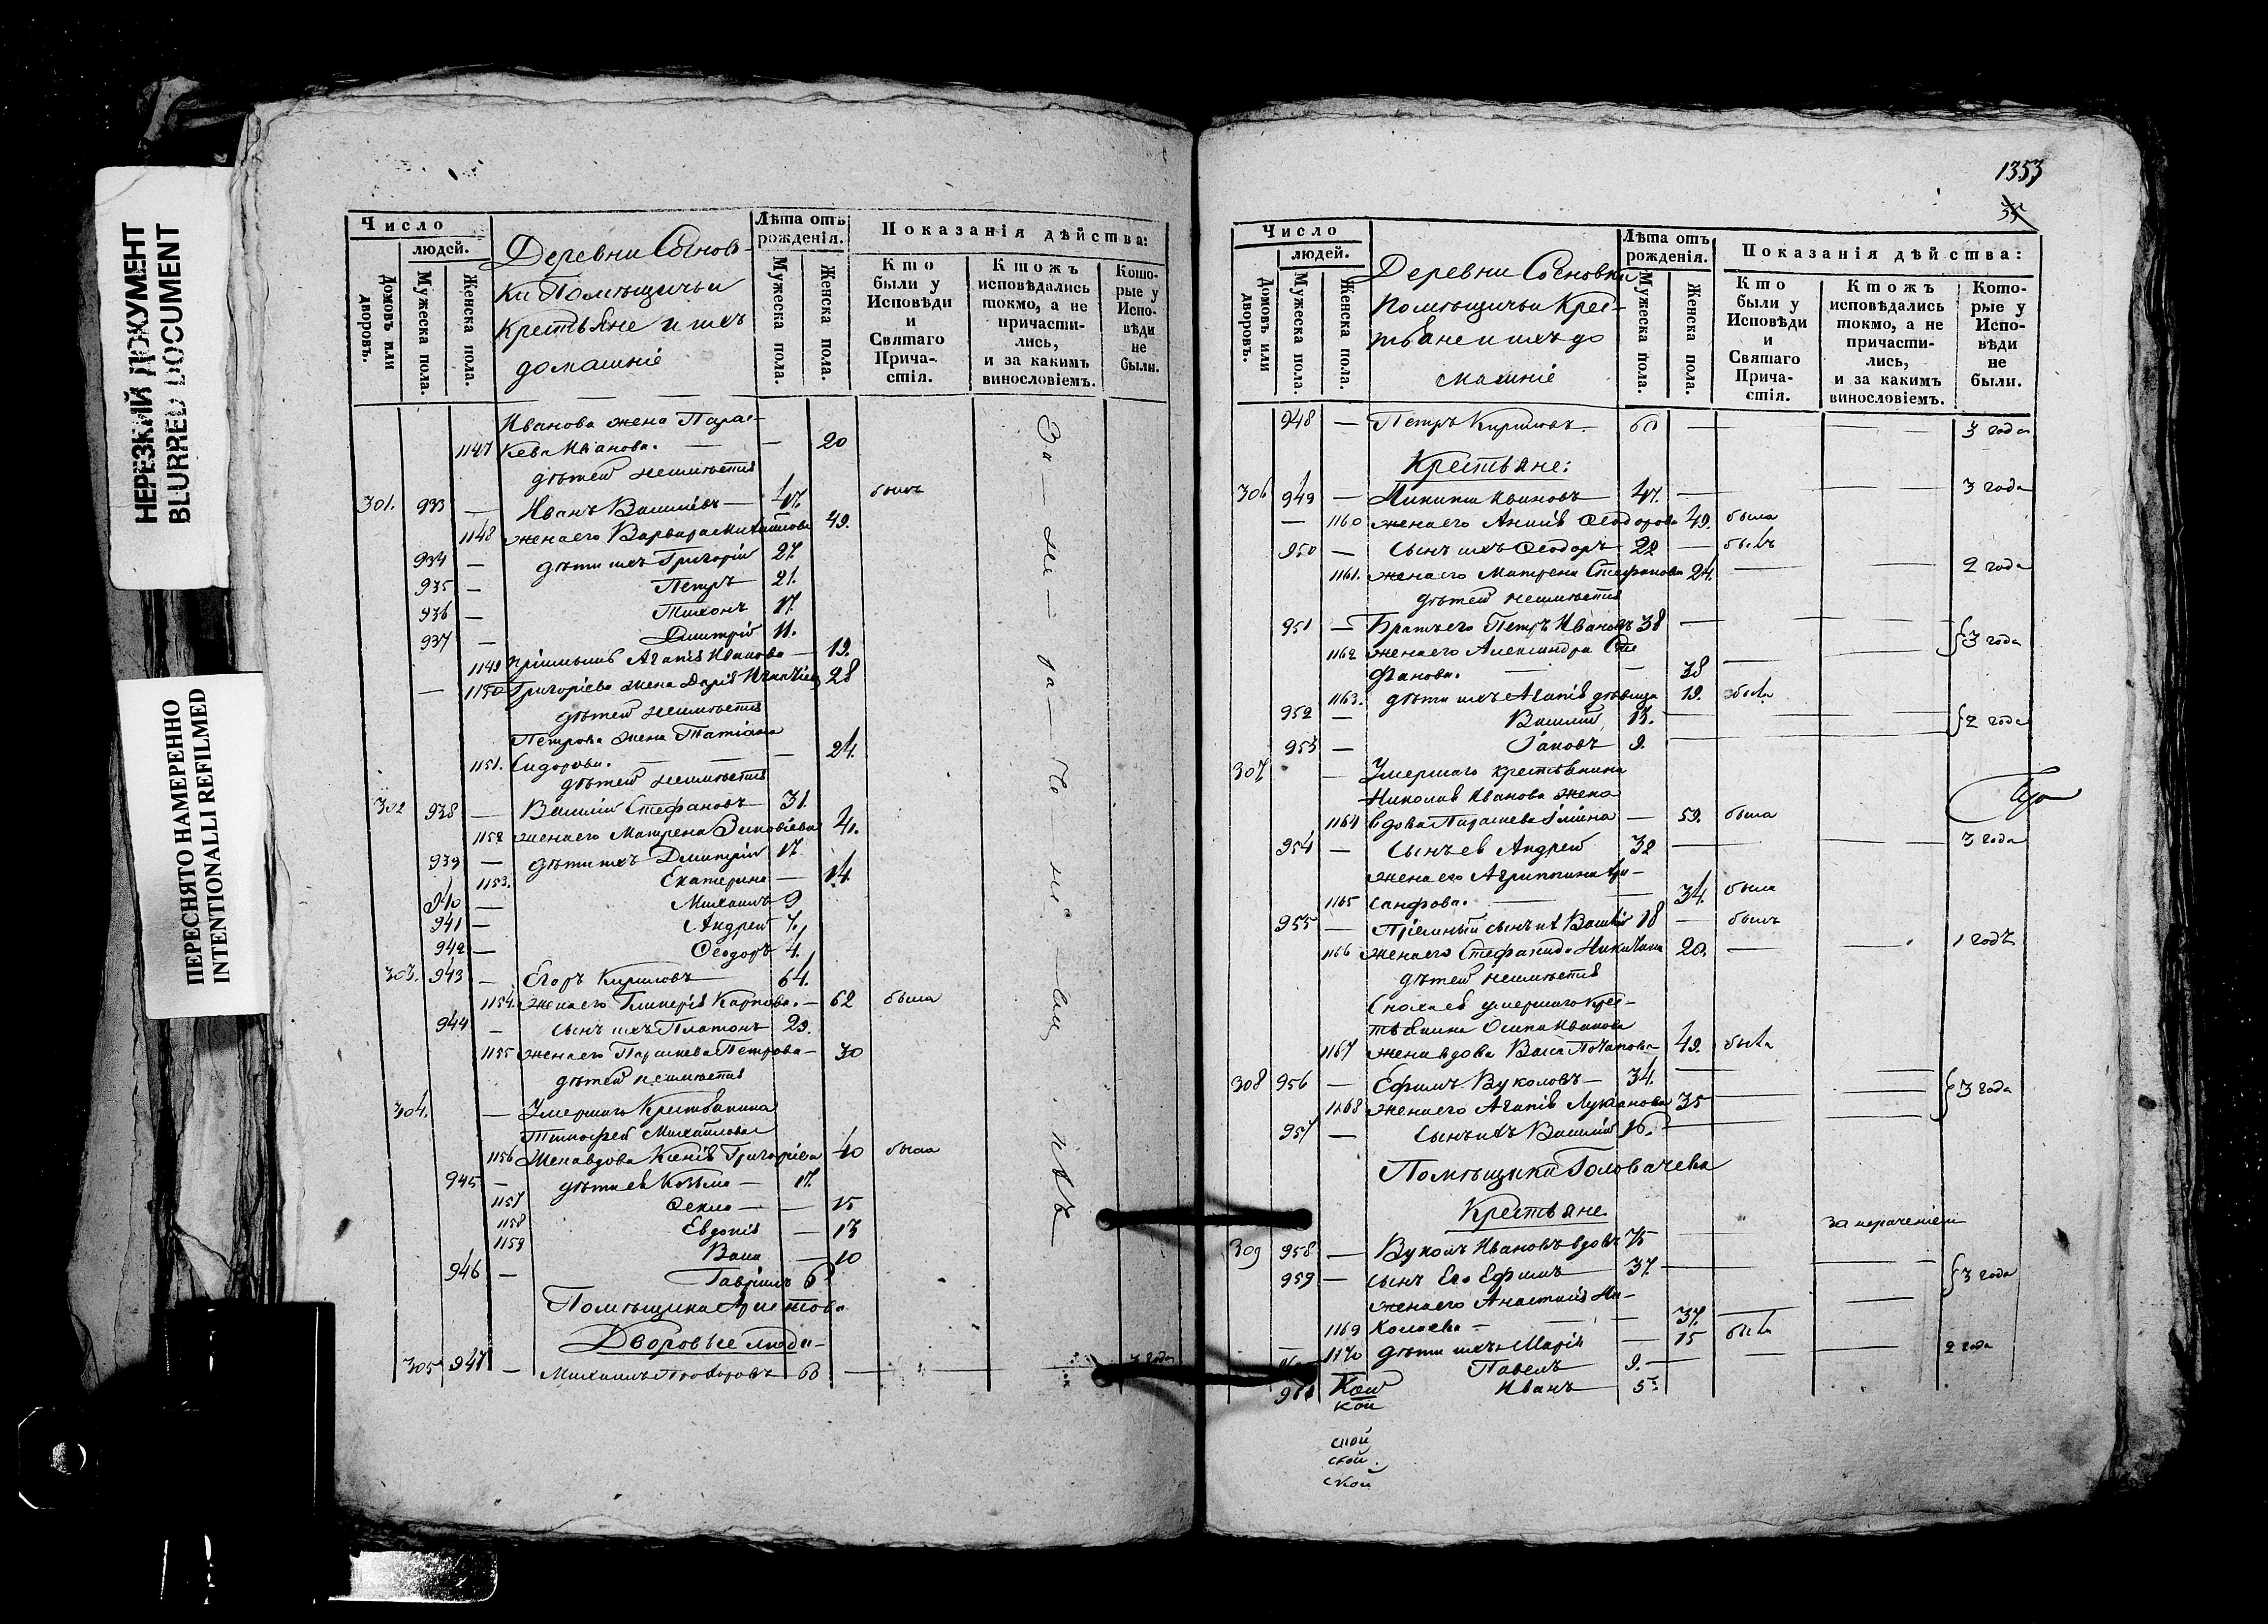 НЕРЕЗКИЙ ДОКУМЕНТ
BLURRED DOCUMENT
ПЕРЕСНЯТО НАМЕРЕННО
INTENTIONALLI REFILMED
Число
людей.
Домовъ или дворовъ.
Мужеска пола.
Женска пола.
Деревни Соснов-
ки Помѣщичьи
Крестьяне и ихъ
домашніе
Лѣта отъ рожденія.
Мужеска пола.
Женска пола.
Показанія дѣйства:
Кто были у Исповѣди и Святаго Причастія.
Ктожъ исповѣдались токмо, а не причастились, и за какимъ винословіемъ.
Которые у Исповѣди не были.
Иванова жена Парас-
1147 кева Иванова. — — 20
дѣтей неимѣетъ
301. 933 — Иванъ Васильевъ — 47. былъ
1148 жена его Варвара Михайлова 49.
934 — дѣти ихъ Григорій 27.
935 — Петръ 21.
936 — Тихонъ 17.
937 — Дмитрій 11.
1149 Агапія Иванова — 19.
— 1150 Григорьева жена Дарія 28
дѣтей неимѣетъ
Петрова жена Татіана
1151. Сидорова. — — 24.
дѣтей неимѣетъ
302 938 — Василій Стефановъ 31.
1152 жена его Матрена Зиновіева 41.
939 — дѣти ихъ Дмитрій 17.
1153. Екатерина — 14.
940 — Михаилъ 9
941 — Андрей 7.
942 — Ѳеодоръ 4.
303. 943. — Егоръ Кириловъ 64.
1154. жена его Гликерія Карпова. — 62 была
944 — сынъ ихъ Платонъ 29.
1155 жена его Параскева Петрова — 30
дѣтей неимѣетъ
304. — Умершаго Крестьянина
Тимофея Михайлова
1156 жена вдова Ксенія Григоріева 40 была
945 — дѣти ея Козьма — 17.
1157 Ѳекла — — 15
1158 Евдокія — 13
1159 Васса — 10
946 — Гавріилъ 6
Помѣщика
Дворовые люди —
305 947 — Михаилъ Прохоровъ 60 — 3 года
1353
35
Число
людей.
Домовъ или дворовъ.
Мужеска пола.
Женска пола.
Деревни Сосновки
помѣщичьи Крес-
тьяне и ихъ до
машніе
Лѣта отъ рожденія.
Мужеска пола.
Женска пола.
Показанія дѣйства:
Кто были у Исповѣди и Святаго Причастія.
Ктожъ исповѣдались токмо, а не причастились, и за какимъ винословіемъ.
Которые у Исповѣди не были.
948 — Петръ Кириловъ 60 — 3 года
Крестьяне:
306 949 — Никита Ивановъ 47. — 3 года
— 1160 жена его Ѳеодорова 49. была
950 — сынъ ихъ Ѳеодоръ 22 — былъ
1161. жена его Матрена Стефанова 24. — 2 года
дѣтей неимѣетъ
951 — Братъ его Петръ Ивановъ 38 — 3 года
1162 жена его Александра Сте
фанова. — — 38
1163. дѣти ихъ Агапія дѣвица 19. была
952 — Василій 13. — 2 года
953 — Іаковъ 9. —
307. — Умершаго крестьянина
Николая Иванова жена
1164 вдова Параскева Ильина — 59. была
954 — сынъ ея Андрей 32 — 3 года
жена его Агриппина
1165 санфова. — — 34. была
955 — Пріемный сынъ ихъ Василій 18 — былъ
1166 жена его Стефанида Никитина 20. — 1 годъ
дѣтей неимѣетъ
Сноха ея умершаго крес-
тьянина Осипа Иванова
1167 жена вдова Васса Потапова 49. была
308 956 — Ефимъ Вуколовъ — 34. — 3 года
1168 жена его Агапія Лукіанова 35 —
957 — сынъ ихъ Василій 16. —
Помѣщика Головачева
Крестьяне
за нераченіемъ
309 958 — Вуколъ Ивановъ вдовъ 75 —
959 — сынъ Его Ефимъ 37. — 3 года
жена его Анастасія Ни-
1169 колаева — — 37.
— 1170 дѣти ихъ Марія — 15 была
Павелъ 9. — 2 года
961 Иванъ 5.
кой
ской
ской
ской